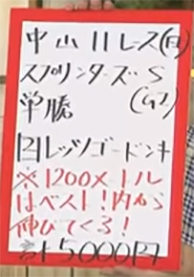 中山11レース(日)
スプリンターズS
単勝 (G1)
2 レッツゴードンキ
※1200メートル
はベスト!内から
伸びてくる!
計5000円